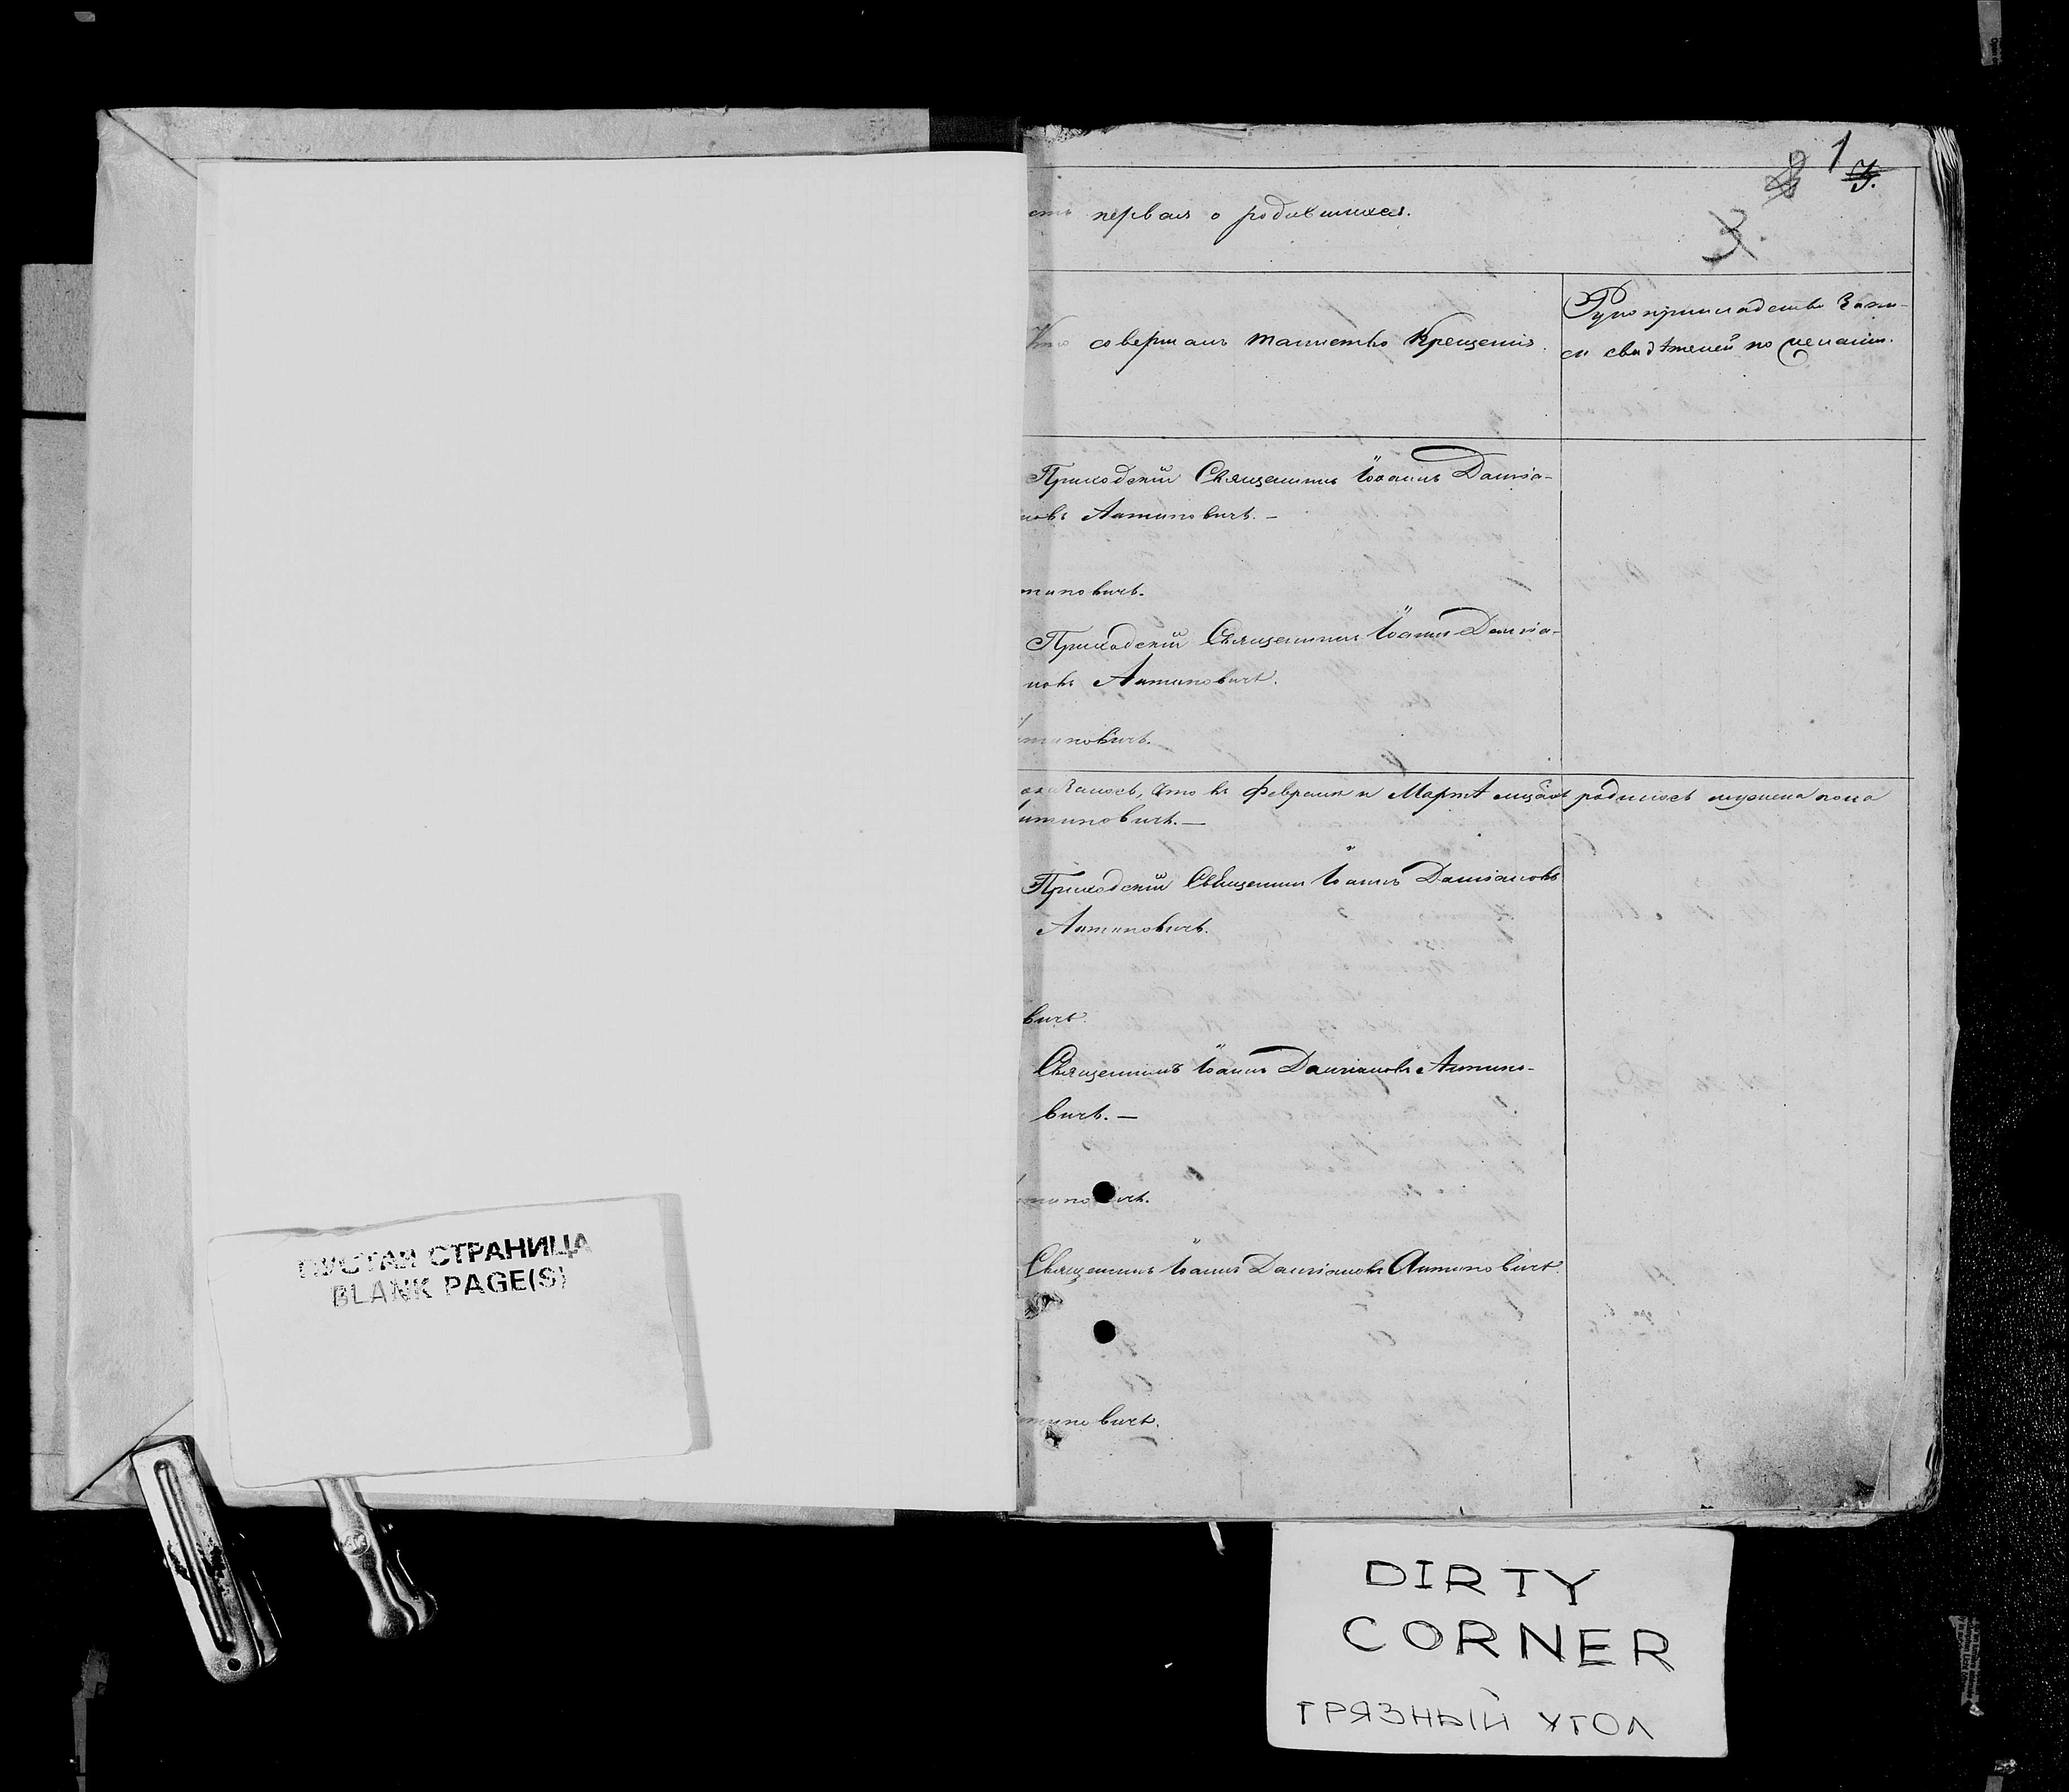 ПУСТАЯ СТРАНИЦА
BLANK PAGE(S)
1
3
сть первая о родившихся.
Кто совершалъ таинство Крещенія.
Рукоприкладство запи-
си свидѣтелей по желанію.
Приходскій Священникъ Іоаннъ Даміа-
новъ Антиповичъ. —
типовичъ.
Приходскій Священникъ Іоаннъ Даміа-
новъ Антиповичъ.
типовичъ.
оказалось, что въ Февралѣ и Мартѣ родилось мужеска пола
нтиповичъ. —
Приходскій Священникъ Іоаннъ Даміановъ
Антиповичъ.
вичъ.
Священникъ Іоаннъ Даміановъ Антипо-
вичъ. —
типовичъ.
Священникъ Іоаннъ Даміановъ Антиповичъ.
типовичъ.
DIRTY
CORNER
ГРЯЗНЫЙ УГОЛ